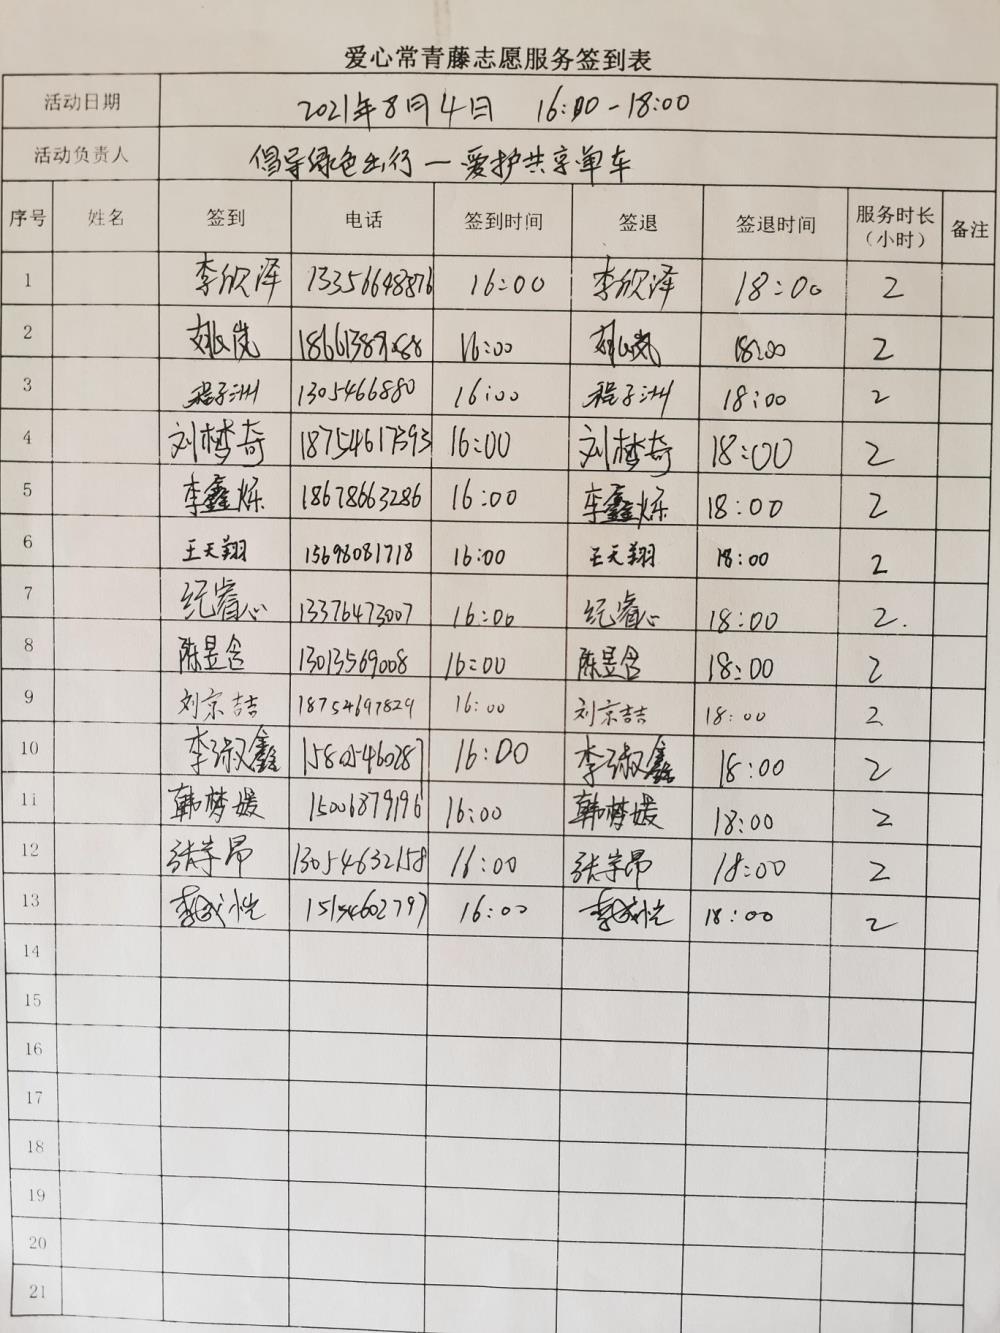 爱心常青藤志愿服务签到表
活动日期 2021年8月4日 16:00-18:00
活动负责人 倡导绿色出行一爱护共享单车
序号 姓名 签到 电话 签到时间 签退 签退时间 服务时长(小时) 备注
1 李欣泽 13356648876 16:00 李欣泽 18:00 2
2 16:00 18:00 2
3 程子洲 1305466880 16:00 程子洲 18:00 2
4 刘梦奇 18754617393 16:00 刘梦奇 18:00 2
5 李鑫烁 18678663286 16:00 李鑫烁 18:00 2
6 王天翔 15698081718 16:00 王天翔 18:00 2
7 纪睿心 13376473007 16:00 纪睿心 18:00 2.
8 陈昱含 13013569008 16:00 陈昱含 18:00 2
9 刘京喆 18754697829 16:00 刘京喆 18:00 2
10 李淑鑫 15805460287 16:00 李淑鑫 18:00 2
11 韩梦媛 15006879196 16:00 韩梦媛 18:00 2
12 张宇昂 13054632158 16:00 张宇昂 18:00 2
13 15154602797 16:00 18:00 2
14
15
16
17
18
19
20
21